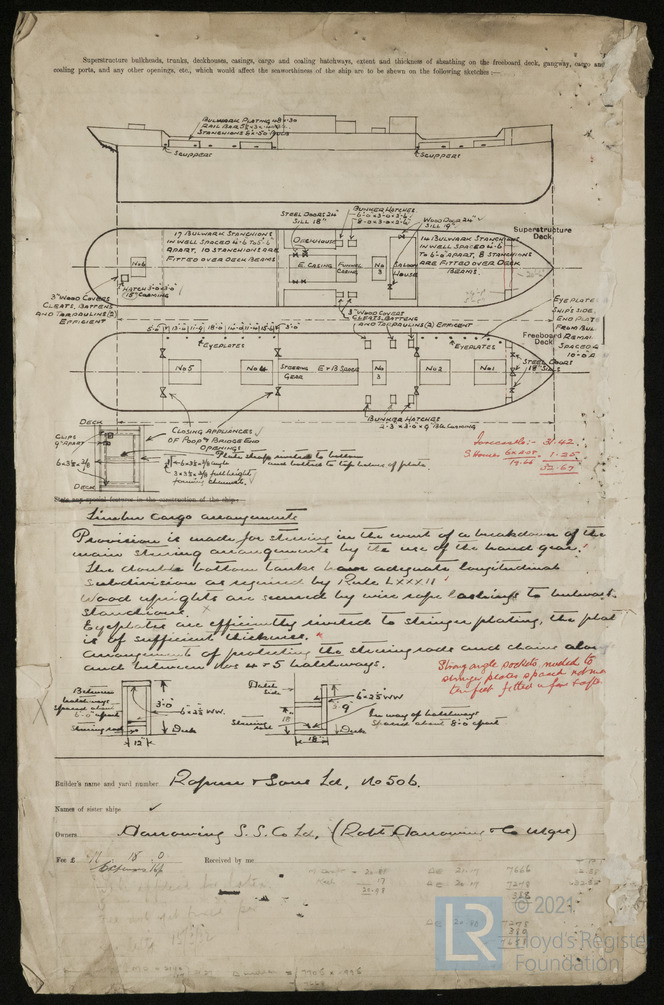 Superstructure bulkheads, trunks, deckhouses, casings, cargo and coaling hatchways, extent and thickness of sheathing on the freeboard deck, gangway, cargo and
coaling ports, and any other openings, etc., which would affect the seaworthiness of the ship are to be shewn on the following sketches :—
BULWARK PLATING 48 x .30
RAIL BAR
STANCHIONS
SCUPPERS
SCUPPERS
STEEL DOORS 24"
SILL 18"
BUNKER HATCHES
6-0 x 3-0 x 3-6
8-0 x 3-0 x 3-6
WOOD DOOR 24"
SILL 19"
Superstructure
Deck
17 BULWARK STANCHIONS
IN WELL SPACED 4-6 TO 5-6
APART, 10 STANCHIONS ARE
FITTED OVER DECK BEAMS
14 BULWARK STANCHIONS
IN WELL SPACED 4-6
TO 6-0 APART, 8 STANCHIONS
ARE FITTED OVER DECK
BEAMS.
No 6
E. CASING
FUNNEL
CASING
No
3
SALOON
HOUSE
HATCH 3-0 x 3-0
15" COAMING
3" WOOD COVERS
CLEATS, BATTENS
AND TARPAULINS (2)
EFFICIENT
3" WOOD COVERS
CLEATS, BATTENS
AND TARPAULINS (2) EFFICIENT
EYEPLATE
SHIP'S SIDE
END PLATE
FROM BUL
REMAI
SPACED 4
10-0 A
Freeboard
Deck
EYEPLATES
EYEPLATES
STEEL DOORS
18" SILLS
No 5
No 4
STEERING
GEAR
E + B SPACE
No
3
No 2
No 1
BUNKER HATCHES
2-3 x 3-0 x 9" COAMING
DECK
CLIPS
9" APART
6 x 3½ x 3/8
DECK
CLOSING APPLIANCES
OF POOP & BRIDGE END
OPENINGS
Plate shops riveted to bottom
and bolted to top halves of plate.
6 x 3½ x 3/8 angle
3 x 3½ x 3/8 full height
forming channels.
Forecastle :- 31.42
3 Houses
1.25
32.67
State any special features in the construction of the ship:
Timber cargo arrangements
Provision is made for steering in the event of a breakdown of the
main steering arrangements by the use of the hand gear.
The double bottom tanks have adequate longitudinal
subdivision as required by Rule LXXXII
Wood uprights are secured by wire rope lashings to bulwark
stanchions.
Eyeplates are efficiently riveted to stringer plating, the plat
is of sufficient thickness.
arrangements of protecting the steering rods and chains along
and between nos 4 & 5 hatchways.
Strong angle sockets, riveted to
stringer plates spaced not more
ten feet fitted
Between
hatchways
spaced about
6-0" apart
Steering rod
3-0
6 x 2½ W.W.
Deck
12"
Batch
side
Steering
rods
18
6 x 2½ W.W
3-9
In way of hatchways
spaced about 8-0 apart
Deck
18"
Builder's name and yard number Ropner & Sons Ld, No 506.
Names of sister ships
Owners Harrowing S.S. Co Ld, (Robt Harrowing & Co Mgrs)
Fee £ 17 : 15 : 0
Received by me
Expenses
© 2021
LR
Lloyd's Register
Foundation